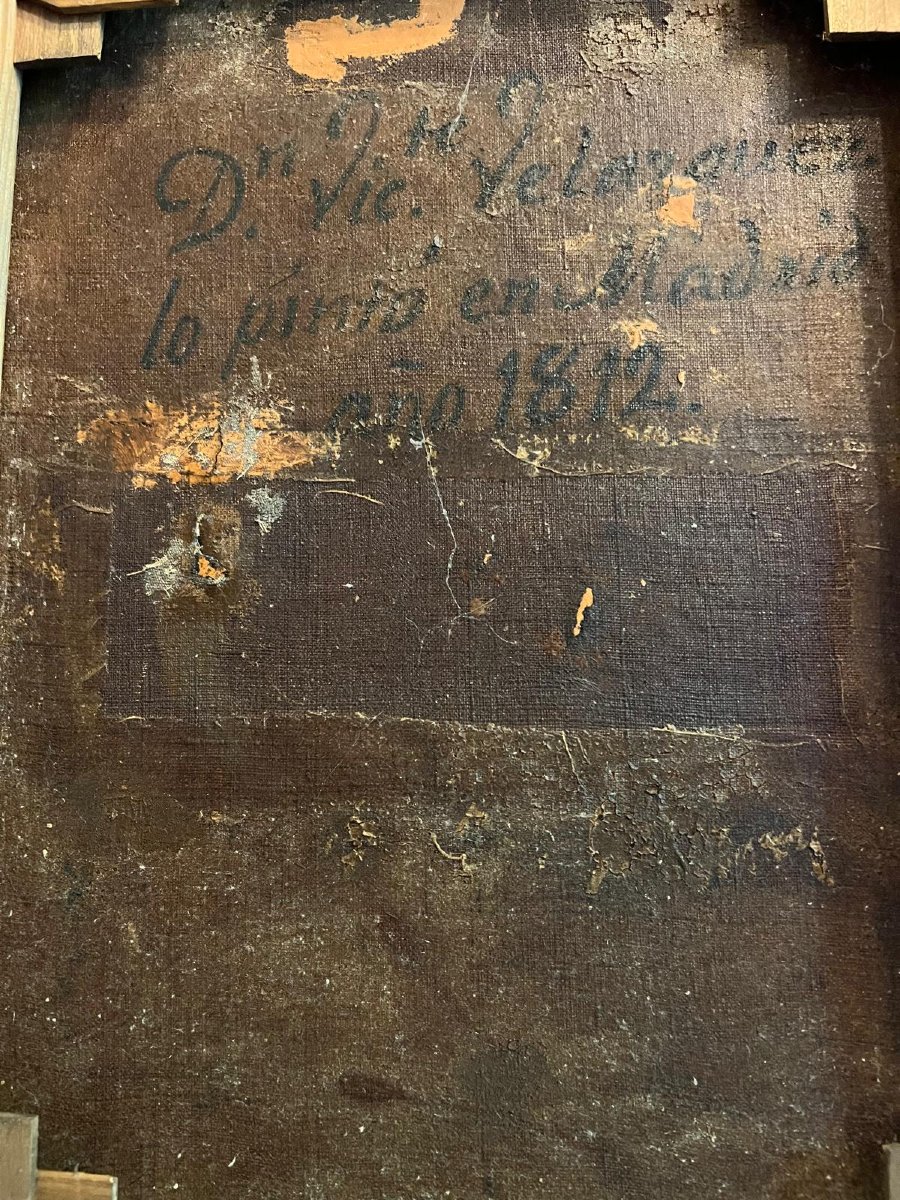 D.ⁿ Vic.ᵗᵉ Velazquez.
lo pintó en Madrid
año 1812.